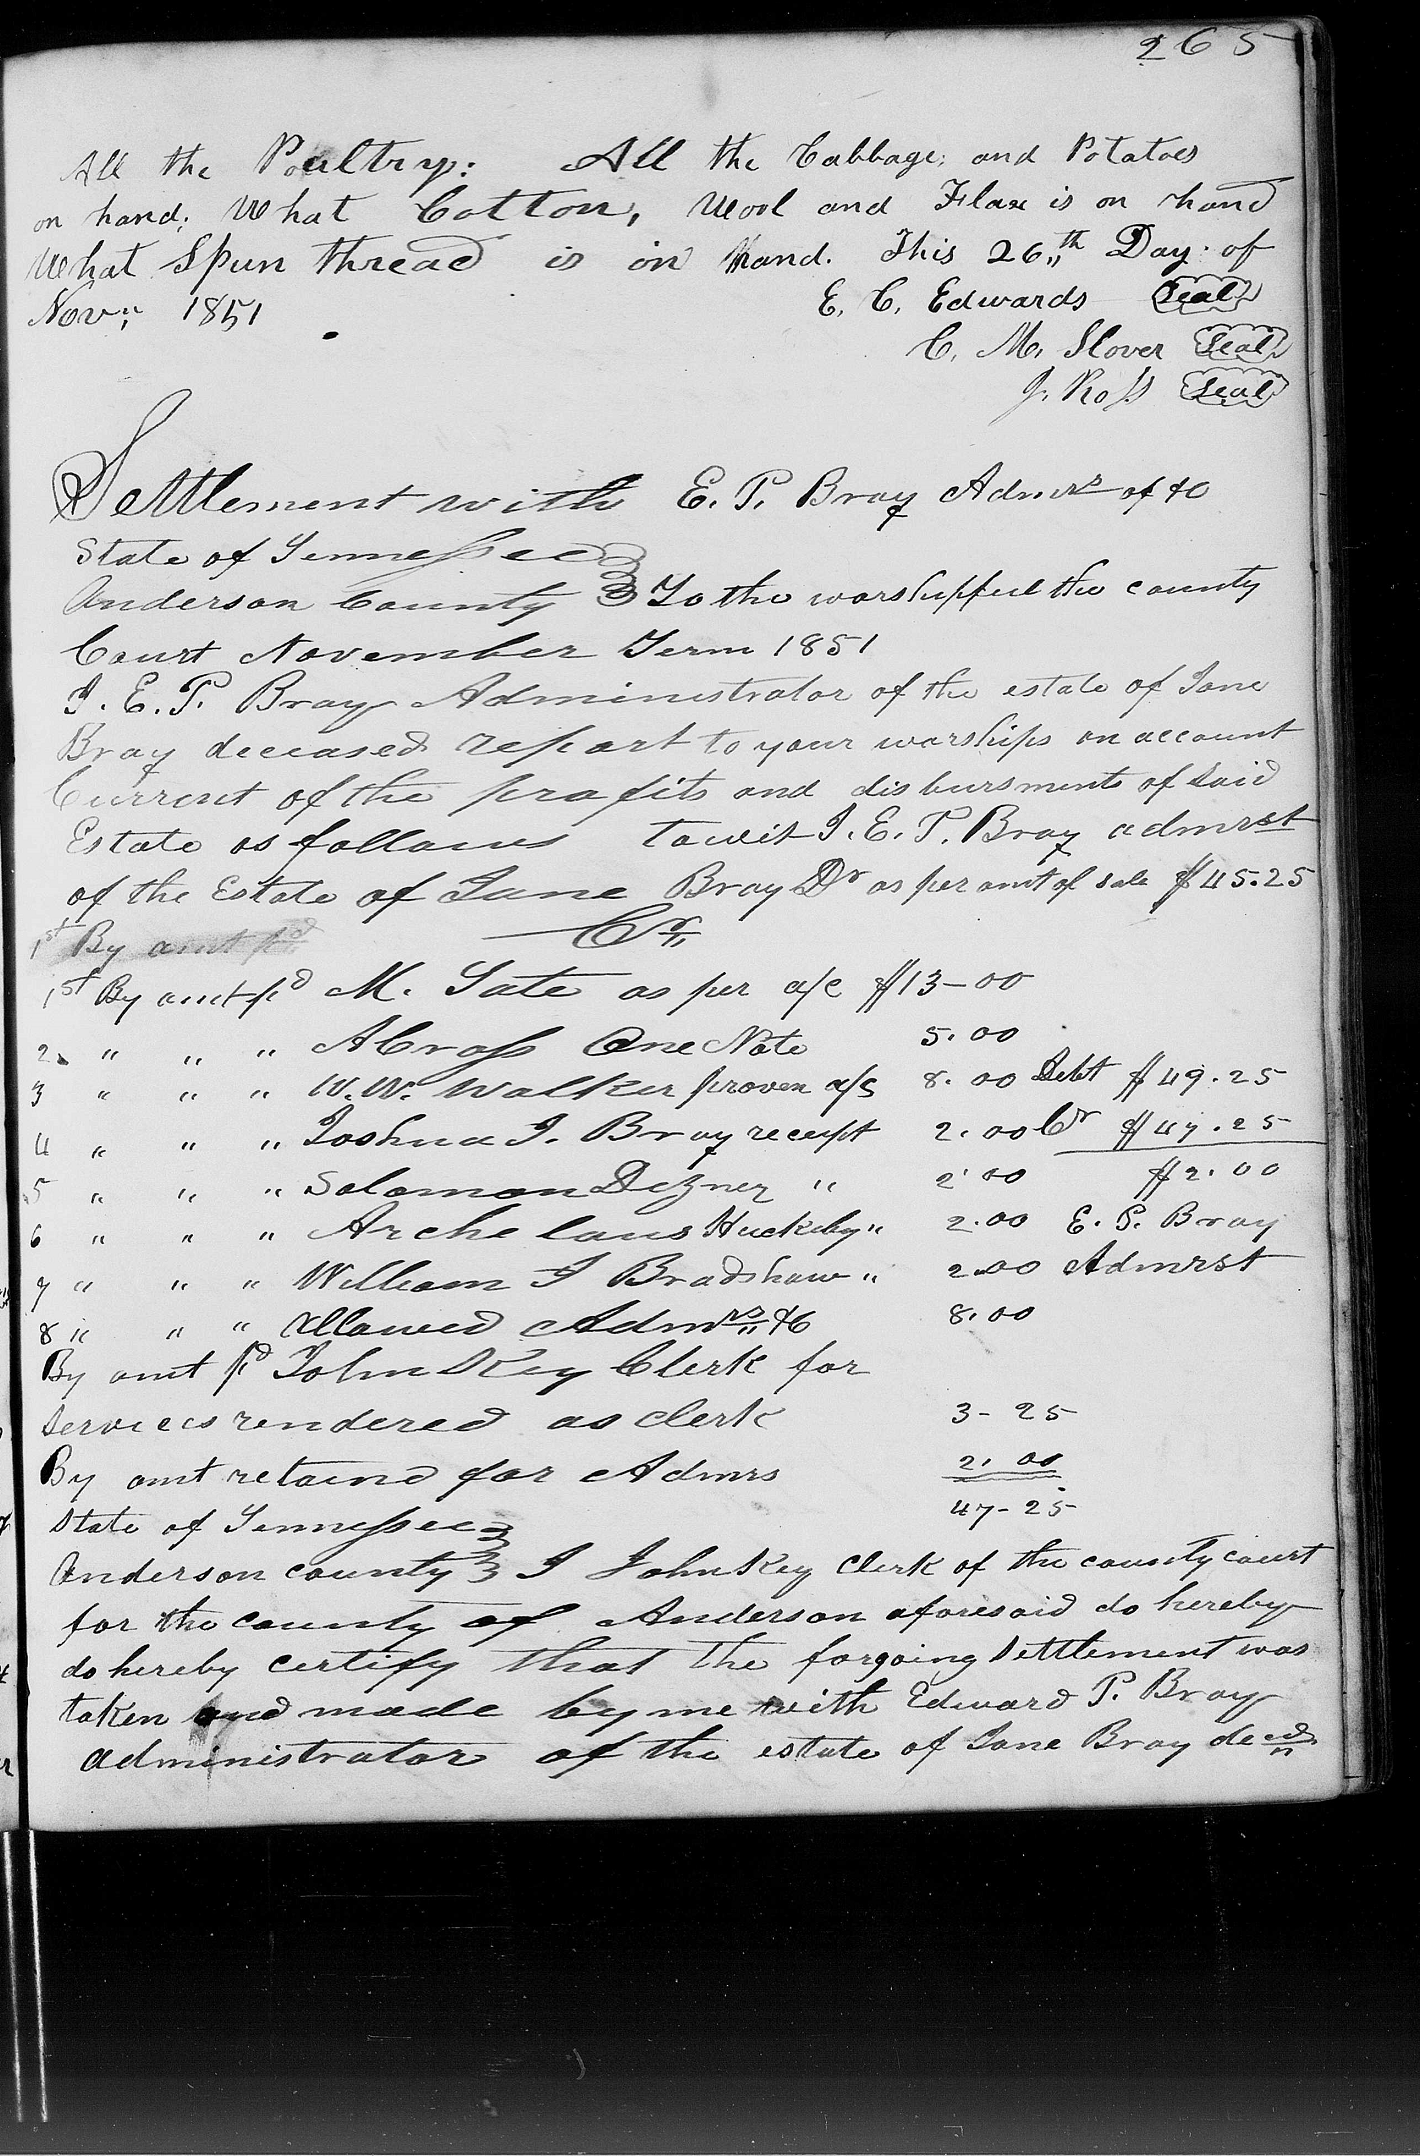 265
All the Poultry: All the Cabbage, and Potatoes
on hand; What Cotton, Wool and Flax is on hand
What Spun thread is on hand. This 26th Day of
Nov" 1851
E. C. Edwards Seal
C. M. Slover Seal
J. Ross Seal
Settlement with E. P. Bray Admrs of &C
State of Tennessee
Anderson County } To the worshipful the county
Court November Term 1851
I. E. P. Bray Administrator of the estate of Jane
Bray deceased report to your worships an account
Current of the profits and disbursments of Said
Estate as follows towit I. E. P. Bray admrst
of the Estate of Jane Bray Dr as per amt of sale $45.25
1st By amt pd Cr
1st By amt pd M. Tate as per a/c $13-00
2 " " " A Cross One Note 5.00
3 " " " W. W. Walker proven a/c 8.00 Debt $49.25
4 " " " Joshua J. Bray receipt 2.00 Cr $47.25
5 " " " Solomon " 2.00 $2.00
6 " " " Archelaus Huckeby " 2.00 E. P. Bray
7 " " " William J Bradshaw " 2.00 Admrst
8 " " " Allowed Admrs &C 8.00
By amt pd John Key Clerk for
Services rendered as clerk 3-25
By amt retaind for Admrs 2.00
47-25
State of Tennessee
Anderson county } I John Key Clerk of the county court
for the county of Anderson aforesaid do hereby
do hereby certify that the forgoing Settlement was
taken and made by me with Edward P. Bray
administrator of the estate of Jane Bray decd